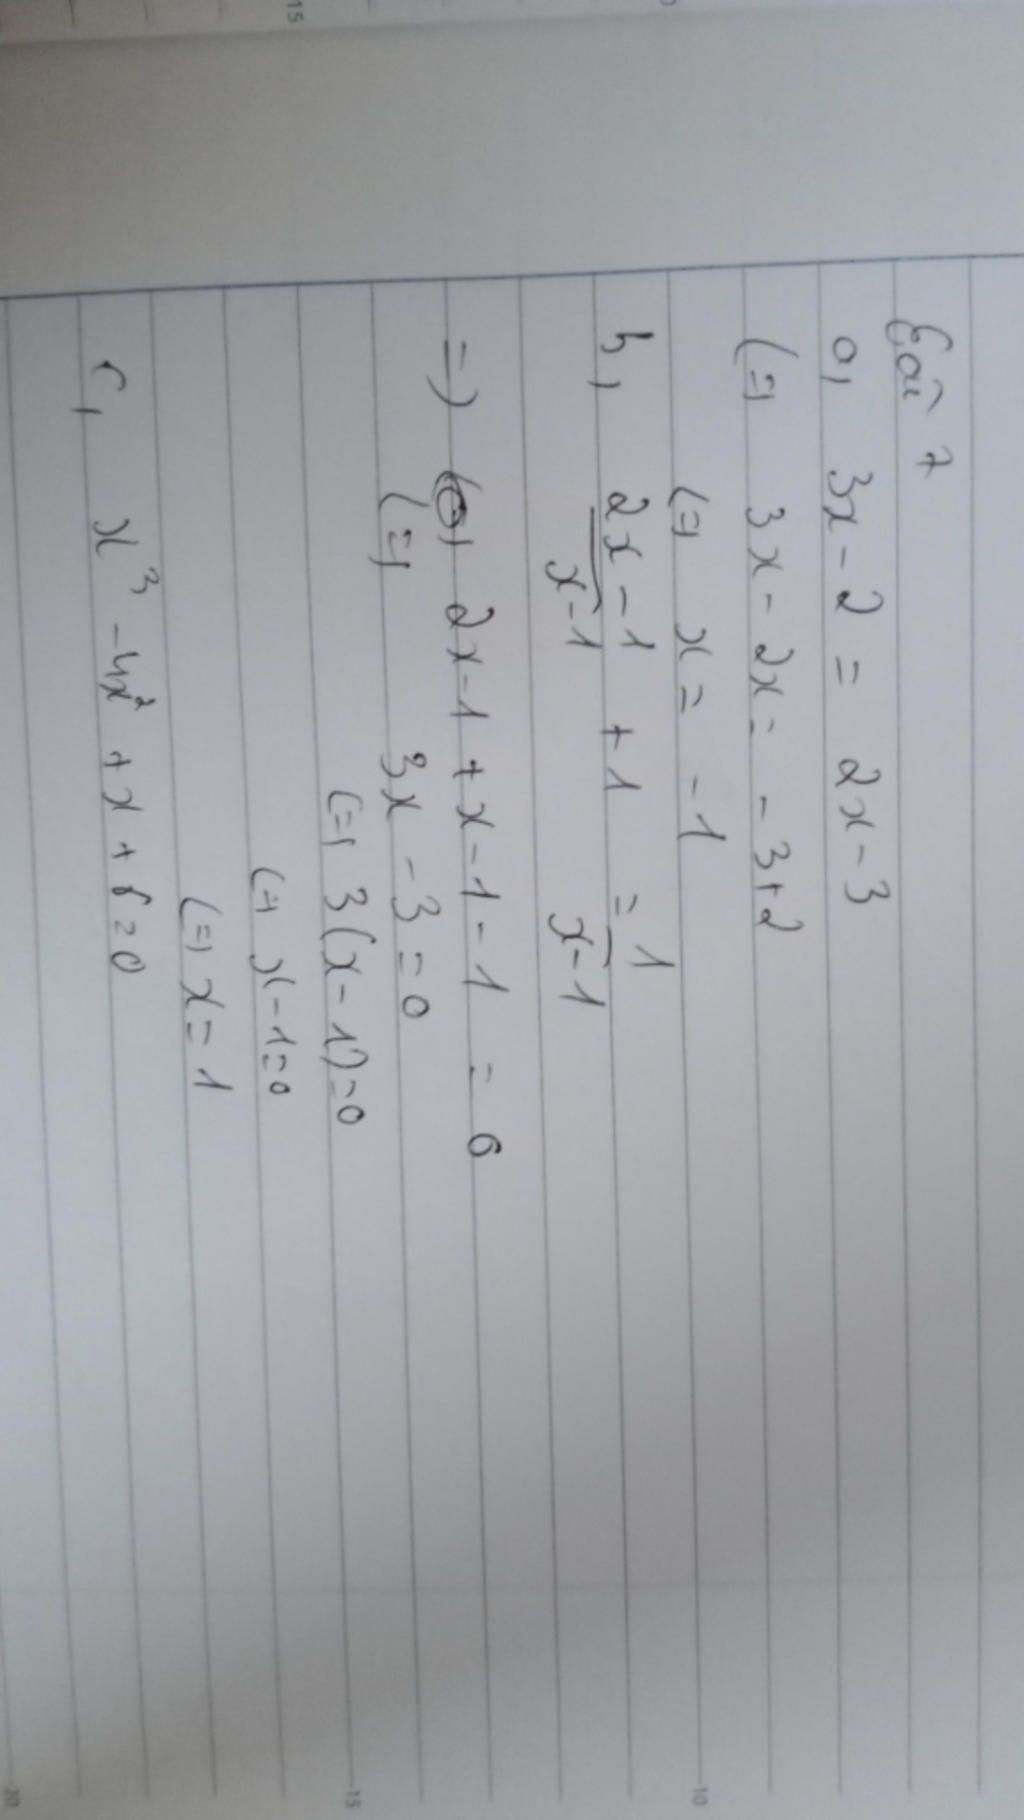 Câu 7
a, 3x - 2 = 2x - 3
(=) 3x - 2x = - 3 + 2
(=) x = - 1
b, \frac{2x - 1}{x - 1} + 1 = \frac{1}{x - 1}
=) 2x - 1 + x - 1 - 1 = 0
(=) 3x - 3 = 0
(=) 3(x - 1) = 0
(=) x - 1 = 0
(=) x = 1
c, x³ - 4x² + x + 6 = 0
15
10
15
20